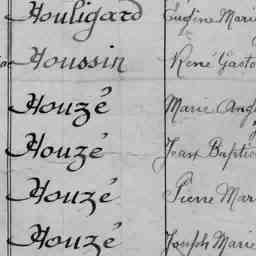 Houligard Eugène Marie
Houssin René Gasto
Houzé Marie Ang
Houzé Jean Baptis
Houzé Pierre Mar
Houzé Joseph Marie